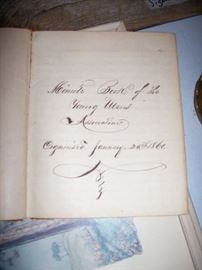 Minute Book of the
Young Mens
Association
Organised January 20th 1860.